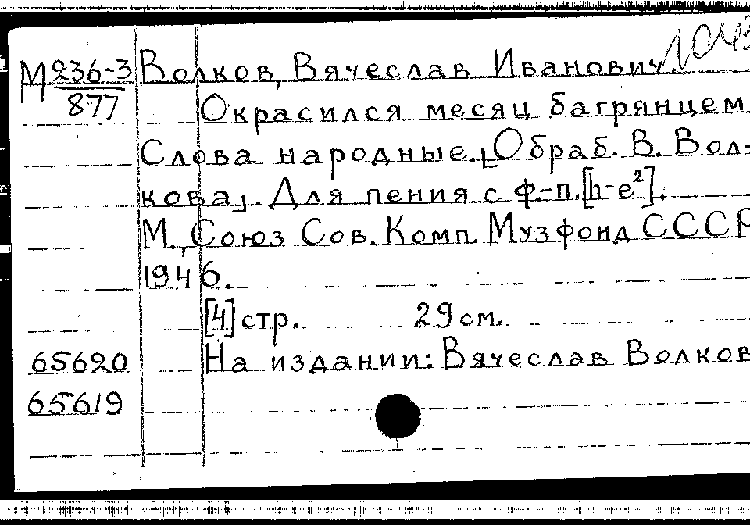 М 236-3
877
Волков, Вячеслав Иванович
Окрасился месяц багрянцем
Слова народные. [Обраб. В. Вол-
кова]. Для пения с ф.-п. [h-e²].
М., Союз Сов. Комп. Музфонд СССР
1946.
[4] стр. 29 см.
65620 На издании: Вячеслав Волков
65619